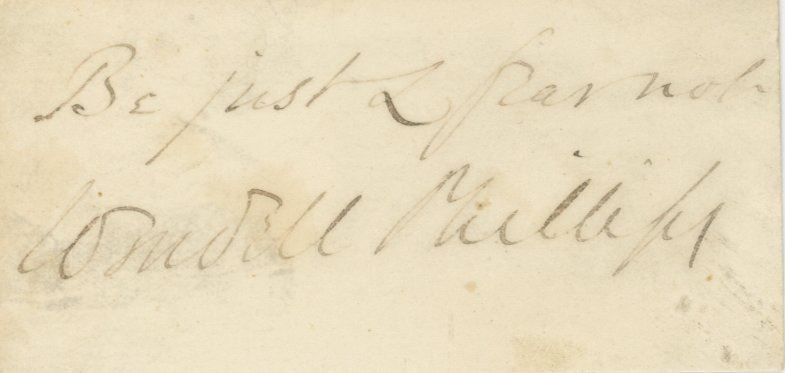 Be just & fear not
Wendell Phillips